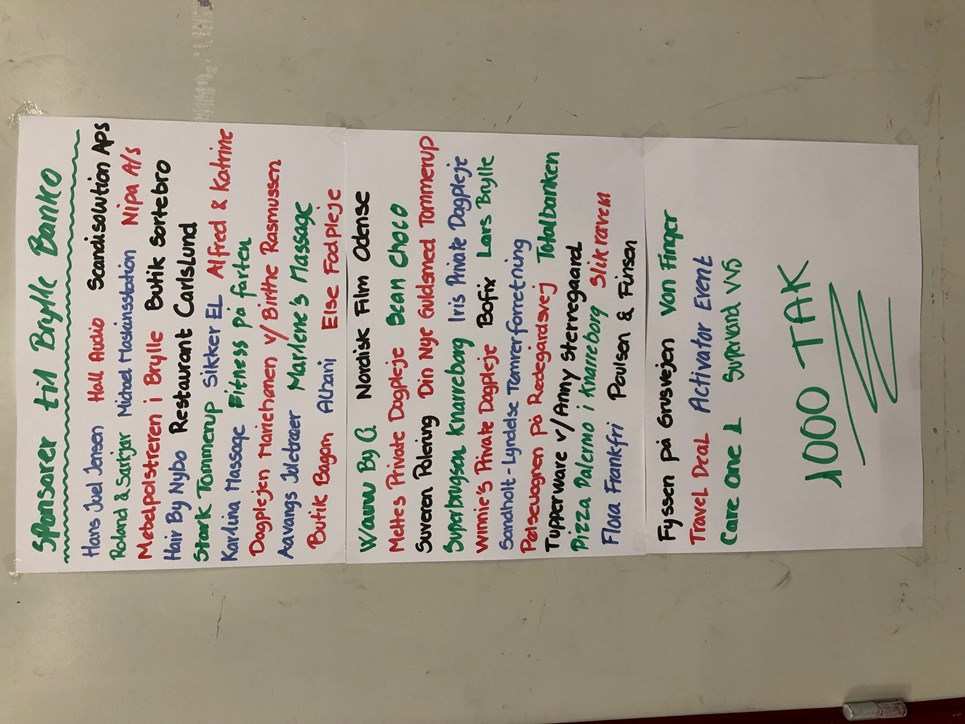 Sponsorer til Brylle Banko
Hans Juel Jensen Hall Audio Scandisolution Aps
Roland & Sarijar Michael Maskinsstation Nipa A/s
Møbelpolstreren i Brylle Butik Sortebro
Hair By Nybo Restaurant Carlslund
Stark Tommerup Sikker EL Alfred & Katrine
Karlina Massage Fitness på farten
Dagplejen Mariehønen v/ Birthe Rasmussen
Aavangs Juletræer Marlene's Massage
Butik Bagom Albani Else Fodpleje
Wauw By G Nordisk Film Odense
Mettes Private Dagpleje Bean Choco
Suveren Polering Din Nye Guldsmed Tommerup
Superbrugsen Knarreborg Iris Private Dagpleje
Winnie's Private Dagpleje Bofix Lars Brylle
Sandholt-Lyndelse Tømrerforretning
Pølsevognen på Rødegårdsvej Totalbanken
Tupperware v/Anny Sterregaard
Pizza Palermo i Knarreborg Slikraven
Flora Frankfri Poulsen & Fúnsen
Fyssen på Grusvejen Von Finger
Travel Deal Activator Event
Care one 1 Supervand VVS
1000 TAK